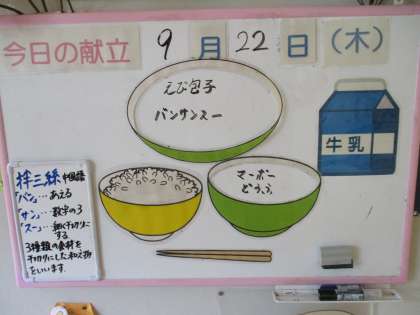 今日の献立 9月22日(木)
えび包子
バンサンスー
牛乳
マーボー
どうふ
拌三絲 中国語
「バン」…あえる
「サン」…数字の3
「スー」…細く千切りに
する
3種類の食材を
千切りにした和え物
をいいます。